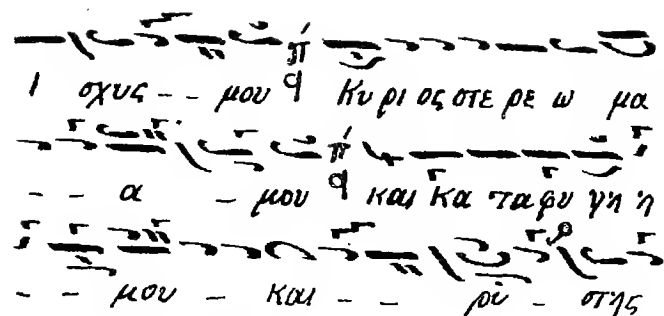 Ι σχυς - - μου Κυ ρι ος στε ρε ω μα
- - α - μου και Κα τα φυ γη η
- - μου - και - - ρύ - στης